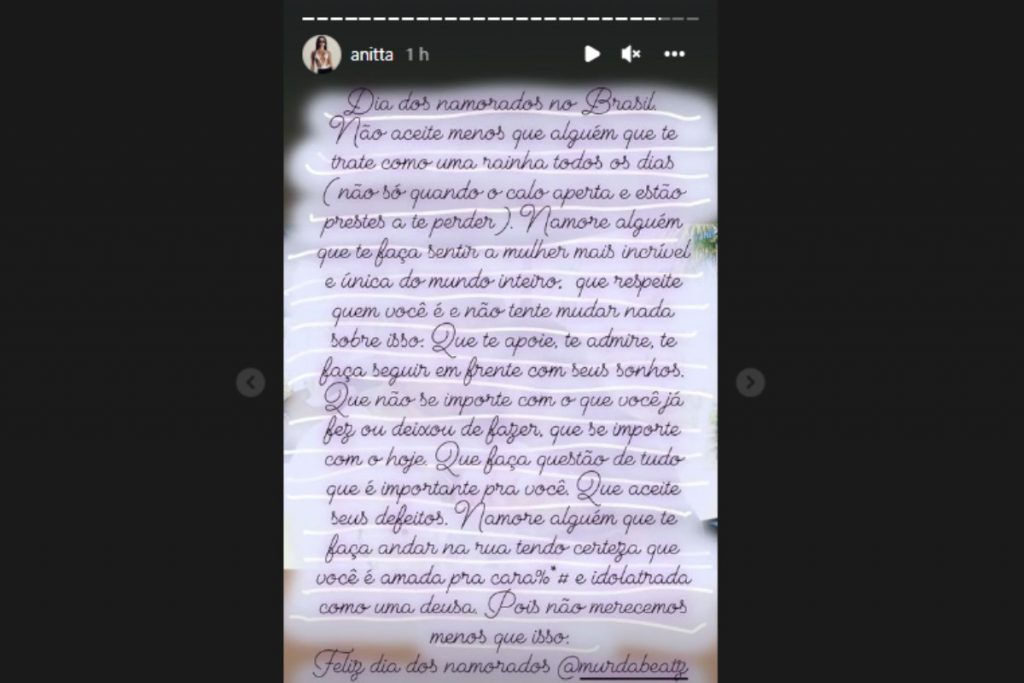 anitta 1 h
Dia dos namorados no Brasil.
Não aceite menos que alguém que te
trate como uma rainha todos os dias
( não só quando o calo aperta e estão
prestes a te perder ). Namore alguém
que te faça sentir a mulher mais incrível
e única do mundo inteiro; que respeite
quem você é e não tente mudar nada
sobre isso. Que te apoie, te admire, te
faça seguir em frente com seus sonhos.
Que não se importe com o que você já
fez ou deixou de fazer, que se importe
com o hoje. Que faça questão de tudo
que é importante pra você. Que aceite
seus defeitos. Namore alguém que te
faça andar na rua tendo certeza que
você é amada pra cara%*# e idolatrada
como uma deusa. Pois não merecemos
menos que isso.
Feliz dia dos namorados @murdabeatz